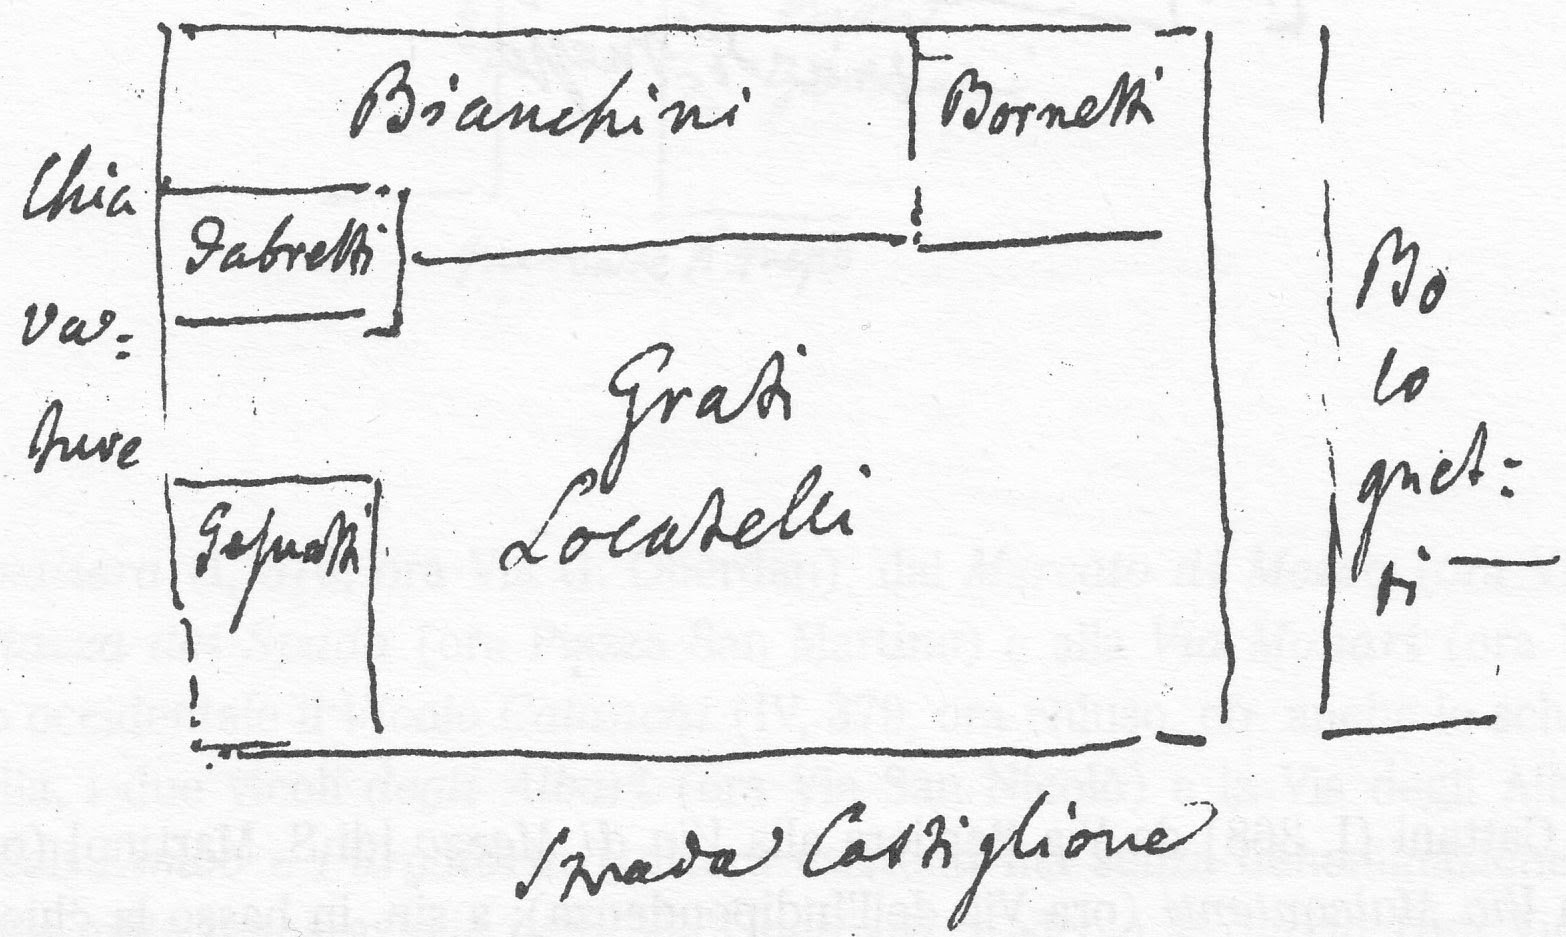 Bianchini
Bornetti
Chia
Fabretti
va=
ture
Grati
Locatelli
Gesuatti
Bo
lo
gnet=
ti
Strada Castiglione